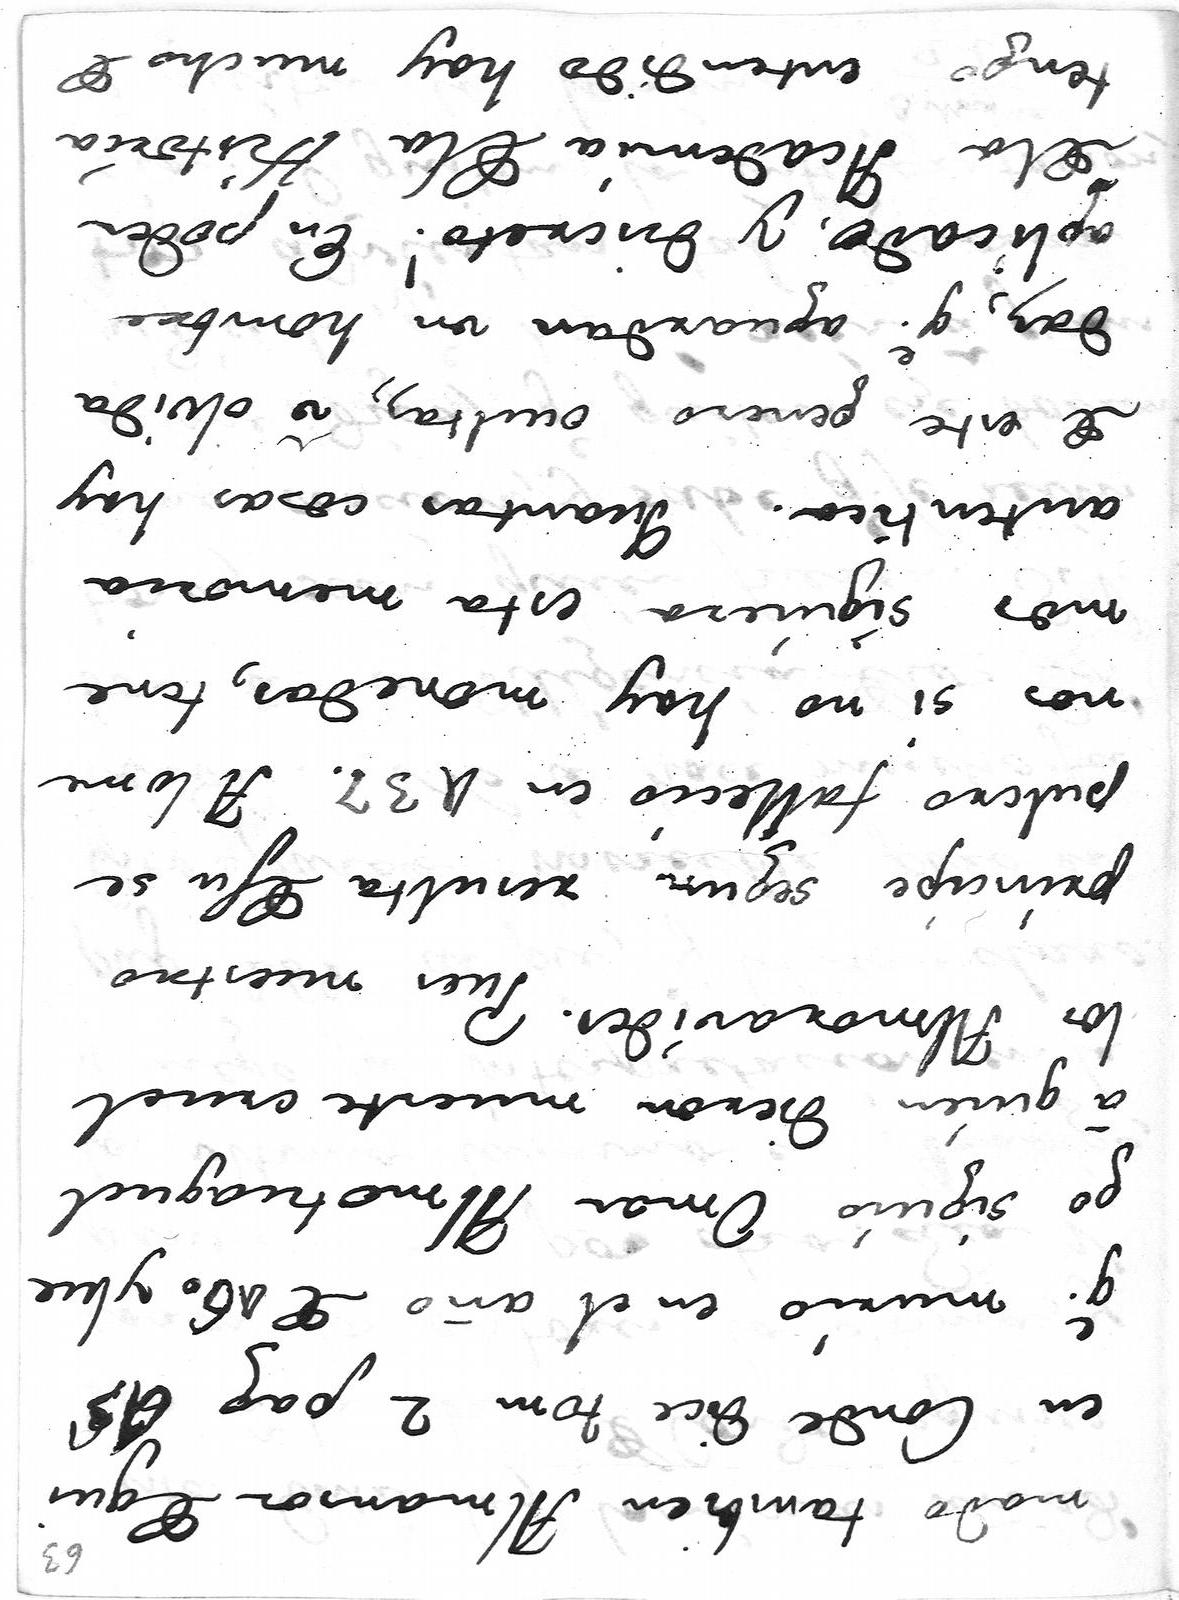 63
mado tambien Almanson de quien
en Conde dice tom 2 pag
q.e murió en el año de 460. y lue
go siguió Omar Almotuaquel
à quien dieron muerte cruel
los Almoravides. Pues nuestro
principe segun resulta de su se
pulcro falleció en 437. A lo me
nos si no hay monedas, tene
mos siquiera esta memoria
autentica. Quantas cosas hay
de este genero ocultas, ò olvida
das, q.e aguardan un hombre
aplicado, y discreto! En poder
de la Academia de la Historia
tengo entendido hay mucho de